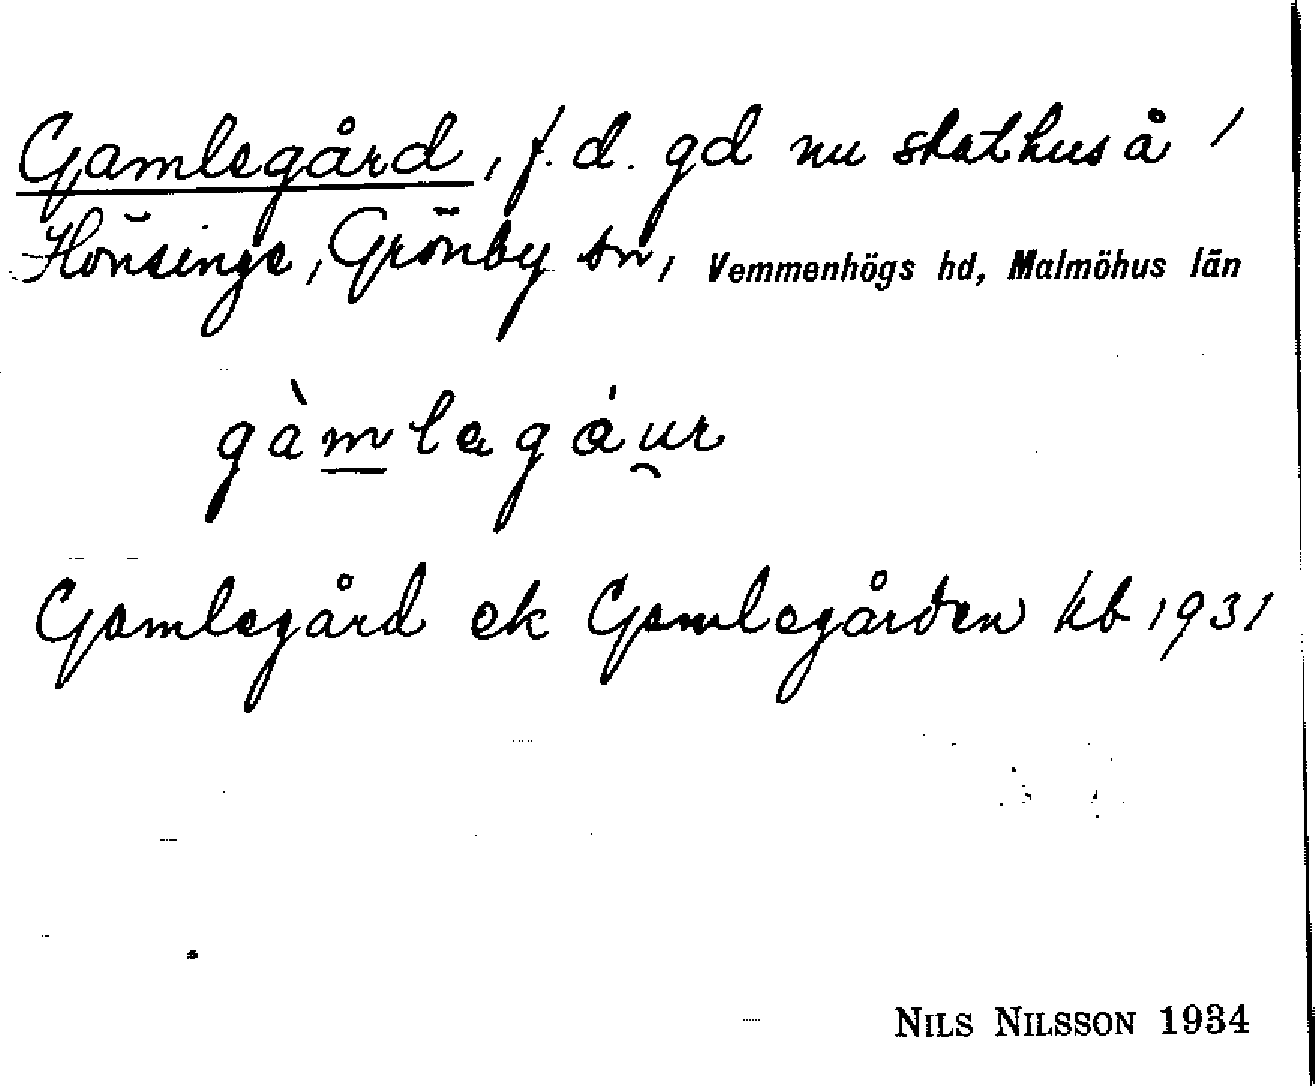 Gamlegård, f. d. gd nu skathus å 1
Hönsinge, Grönby sn, Vemmenhögs hd, Malmöhus län
gàm̲lagáu̯r
Gamlegård ek Gamlegården kb 1931
NILS NILSSON 1934